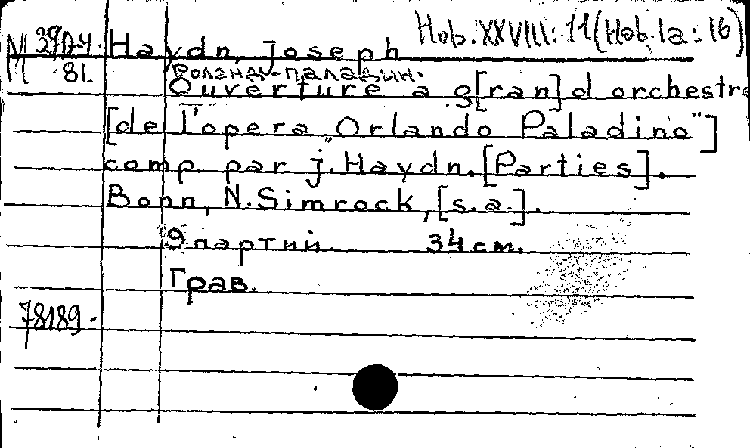 M 39П-4. Haydn, Joseph Hob. XXVIII: 11 (Hob. Ia: 16)
81. Роланд-паладин.
Ouverture a g[ran]d orchestre
[de l'opera „Orlando Paladino"]
comp. par J. Haydn. [Parties].
Bonn, N. Simrock, [s.a.].
9 партий. 34 cm.
Грав.
78189.